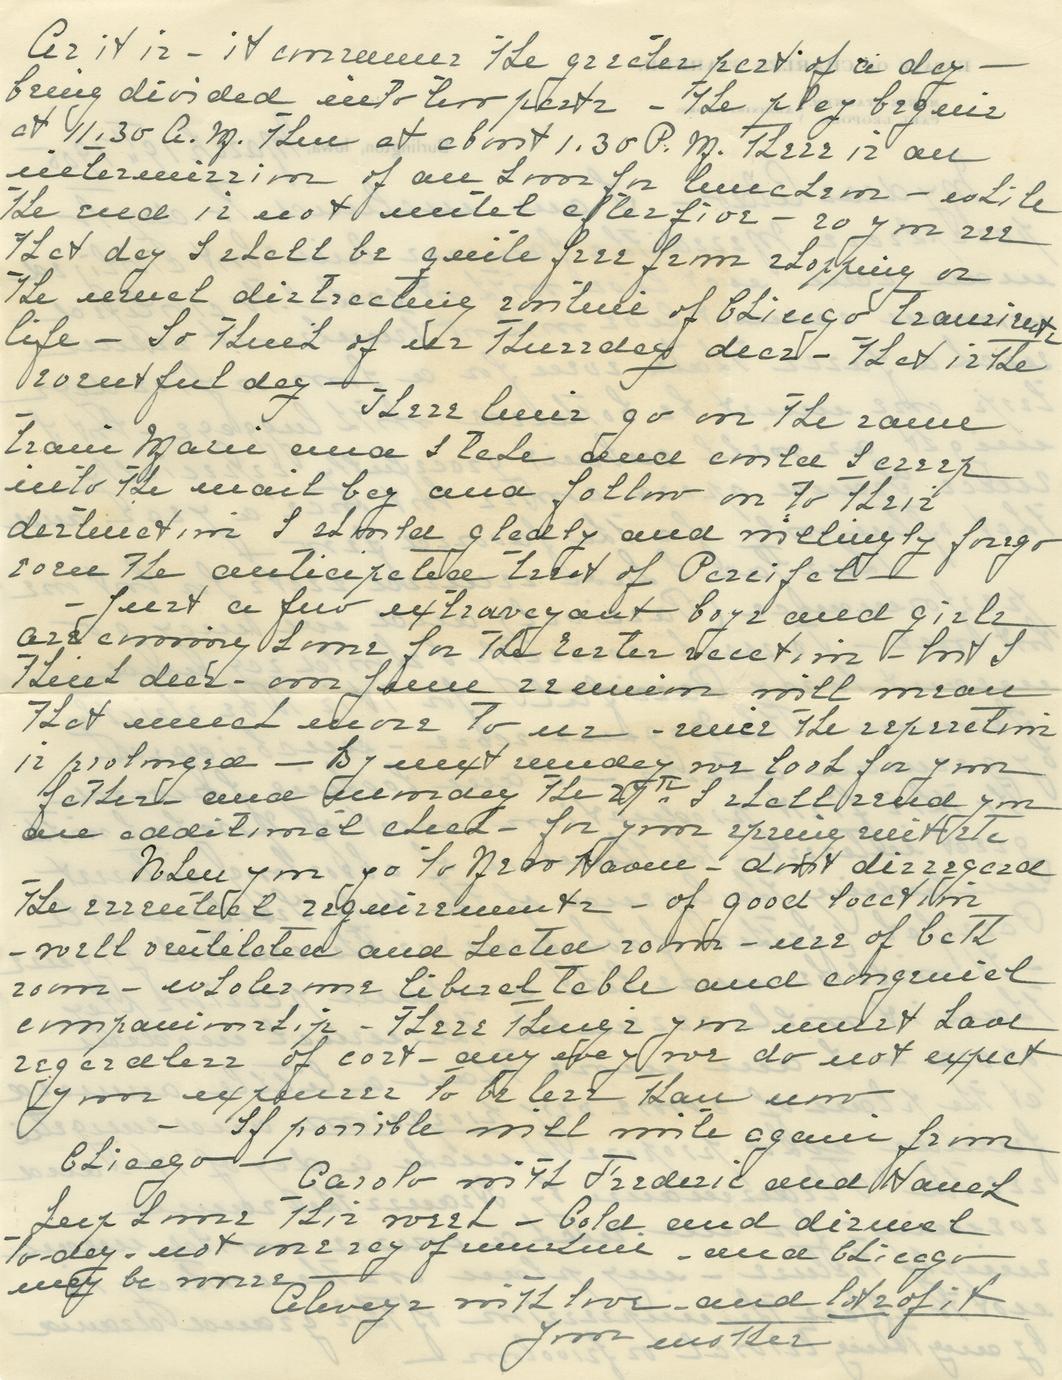 As it is - it consumes the greater part of a day -
being divided into two parts - The play begins
at 11.30 A.M. Then at about 1.30 P.M. There is an
intermission of an hour for luncheon - while
the end is not until after five - so you see
that day I shall be quite free from shopping or
the usual distracting routine of Chicago transient
life - So think of us Thursday dear - That is the
eventful day -
These lines go on the same
train Marie and I take and could I creep
into the mail bag and follow on to their
destination I should gladly and willingly forego
even the anticipated treat of Parcifal -
- Just a few extravagant boys and girls
are coming home for the Easter vacation - but I
think dear - our June reunion will mean
that much more to us - since the separation
is prolonged - By next sunday we look for your
father - and monday the 29th. I shall send you
an additional check - for your spring suit etc
When you go to New Haven - don't disregard
the essential requirements - of good location
- well ventilated and heated room - use of bath
room - wholesome liberal table and congenial
companionship - These things you must have
regardless of cost - any way we do not expect
your expenses to be less than now
- If possible will write again from
Chicago -
Carolo with Frederic and Hanch
Leup home this week - Cold and dismal
to-day - not one ray of sunshine - and Chicago
may be worse -
Always with love - and lots of it
Your mother